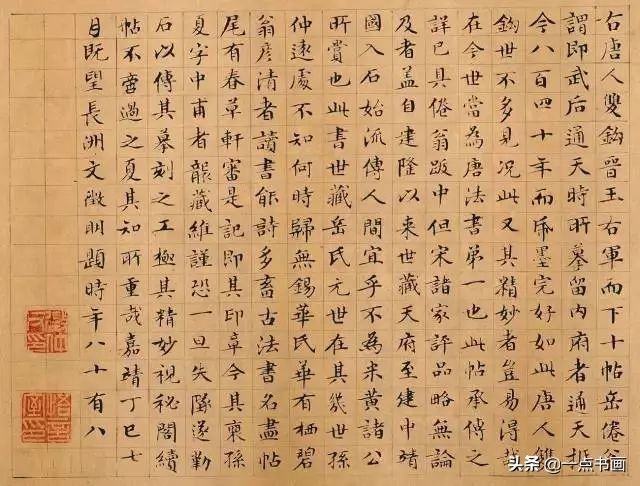 右唐人雙鈎晉王右軍而下十帖岳倦翁
謂即武后通天時所摹留内府者通天抵
今八百四十年而帋墨完好如此唐人雙
鈎世不多見況此又其精妙者豈易得哉
在今世當為唐法書第一也此帖承傳之
詳已具倦翁跋中但宋諸家評品略無論
及者盖自建隆以来世藏天府至建中靖
國入石始流傳人間宜乎不為米黄諸公
所賞也此書世藏岳氏元世在其幾世孫
仲遠處不知何時歸無錫華氏華有栖碧
翁彦清者讀書能詩多畜古法書名畫帖
尾有春草軒審是記即其印章今其裔孫
夏字中甫者襲藏維謹恐一旦失墜遂勒
石以傳其摹刻之工極其精妙視秘閣續
帖不啻過之夏其知所重哉嘉靖丁巳七
月既望長洲文徵明題時年八十有八
头条 @一点书画